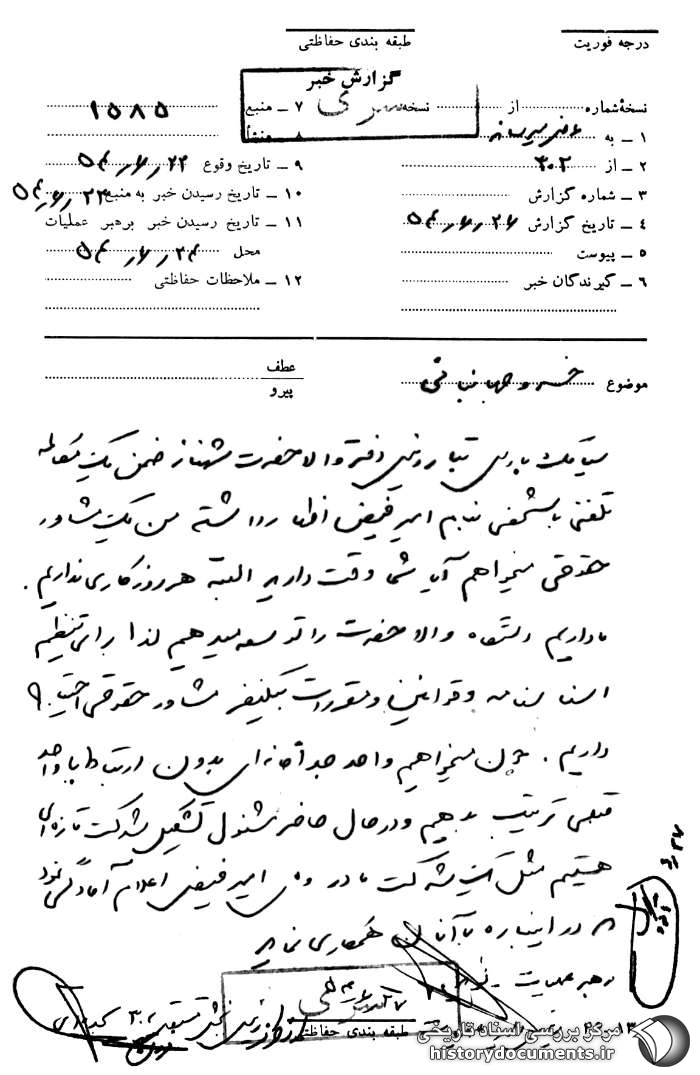 درجه فوریت
طبقه بندی حفاظتی
گزارش خبر
سری
نسخهٔ شماره از نسخه
۱ ـ به
۲ ـ از ۳۰۲
۳ ـ شماره گزارش
۴ ـ تاریخ گزارش ۵۴٫۷٫۲۷
۵ ـ پیوست
۶ ـ گیرندگان خبر
۷ ـ منبع ۱۵۸۵
۸ ـ منشأ
۹ ـ تاریخ وقوع ۵۴٫۷٫۲۲
۱۰ ـ تاریخ رسیدن خبر به منبع ۵۴٫۷٫۲۳
۱۱ ـ تاریخ رسیدن خبر برهبر عملیات
محل ۵۴٫۷٫۲۴
۱۲ ـ ملاحظات حفاظتی
موضوع خسرو جهانبانی
عطف
پیرو
سیامک دفتر والاحضرت شهناز ضمن یک مکالمه
تلفنی با شخصی بنام امیر فیض اظهار داشته من یک مشاور
حقوقی میخواهم آیا شما وقت دارید البته هر روز کاری نداریم.
ما داریم دستگاه والاحضرت را توسعه میدهیم لذا برای تنظیم
اساسنامه و قوانین و مقررات بیکنفر مشاور حقوقی احتیاج
داریم. چون میخواهیم واحد جداگانه‌ای بدون ارتباط با واحد
قبلی ترتیب بدهیم و درحال حاضر مشغول تشکیل شرکت تازه‌ای
هستیم مثل یک شرکت مادر امیر فیض اعلام آمادگی نمود
که در اینباره با آنان همکاری نماید
رهبر عملیات
طبقه بندی حفاظتی
مرکز بررسی اسناد تاریخی
historydocuments.ir